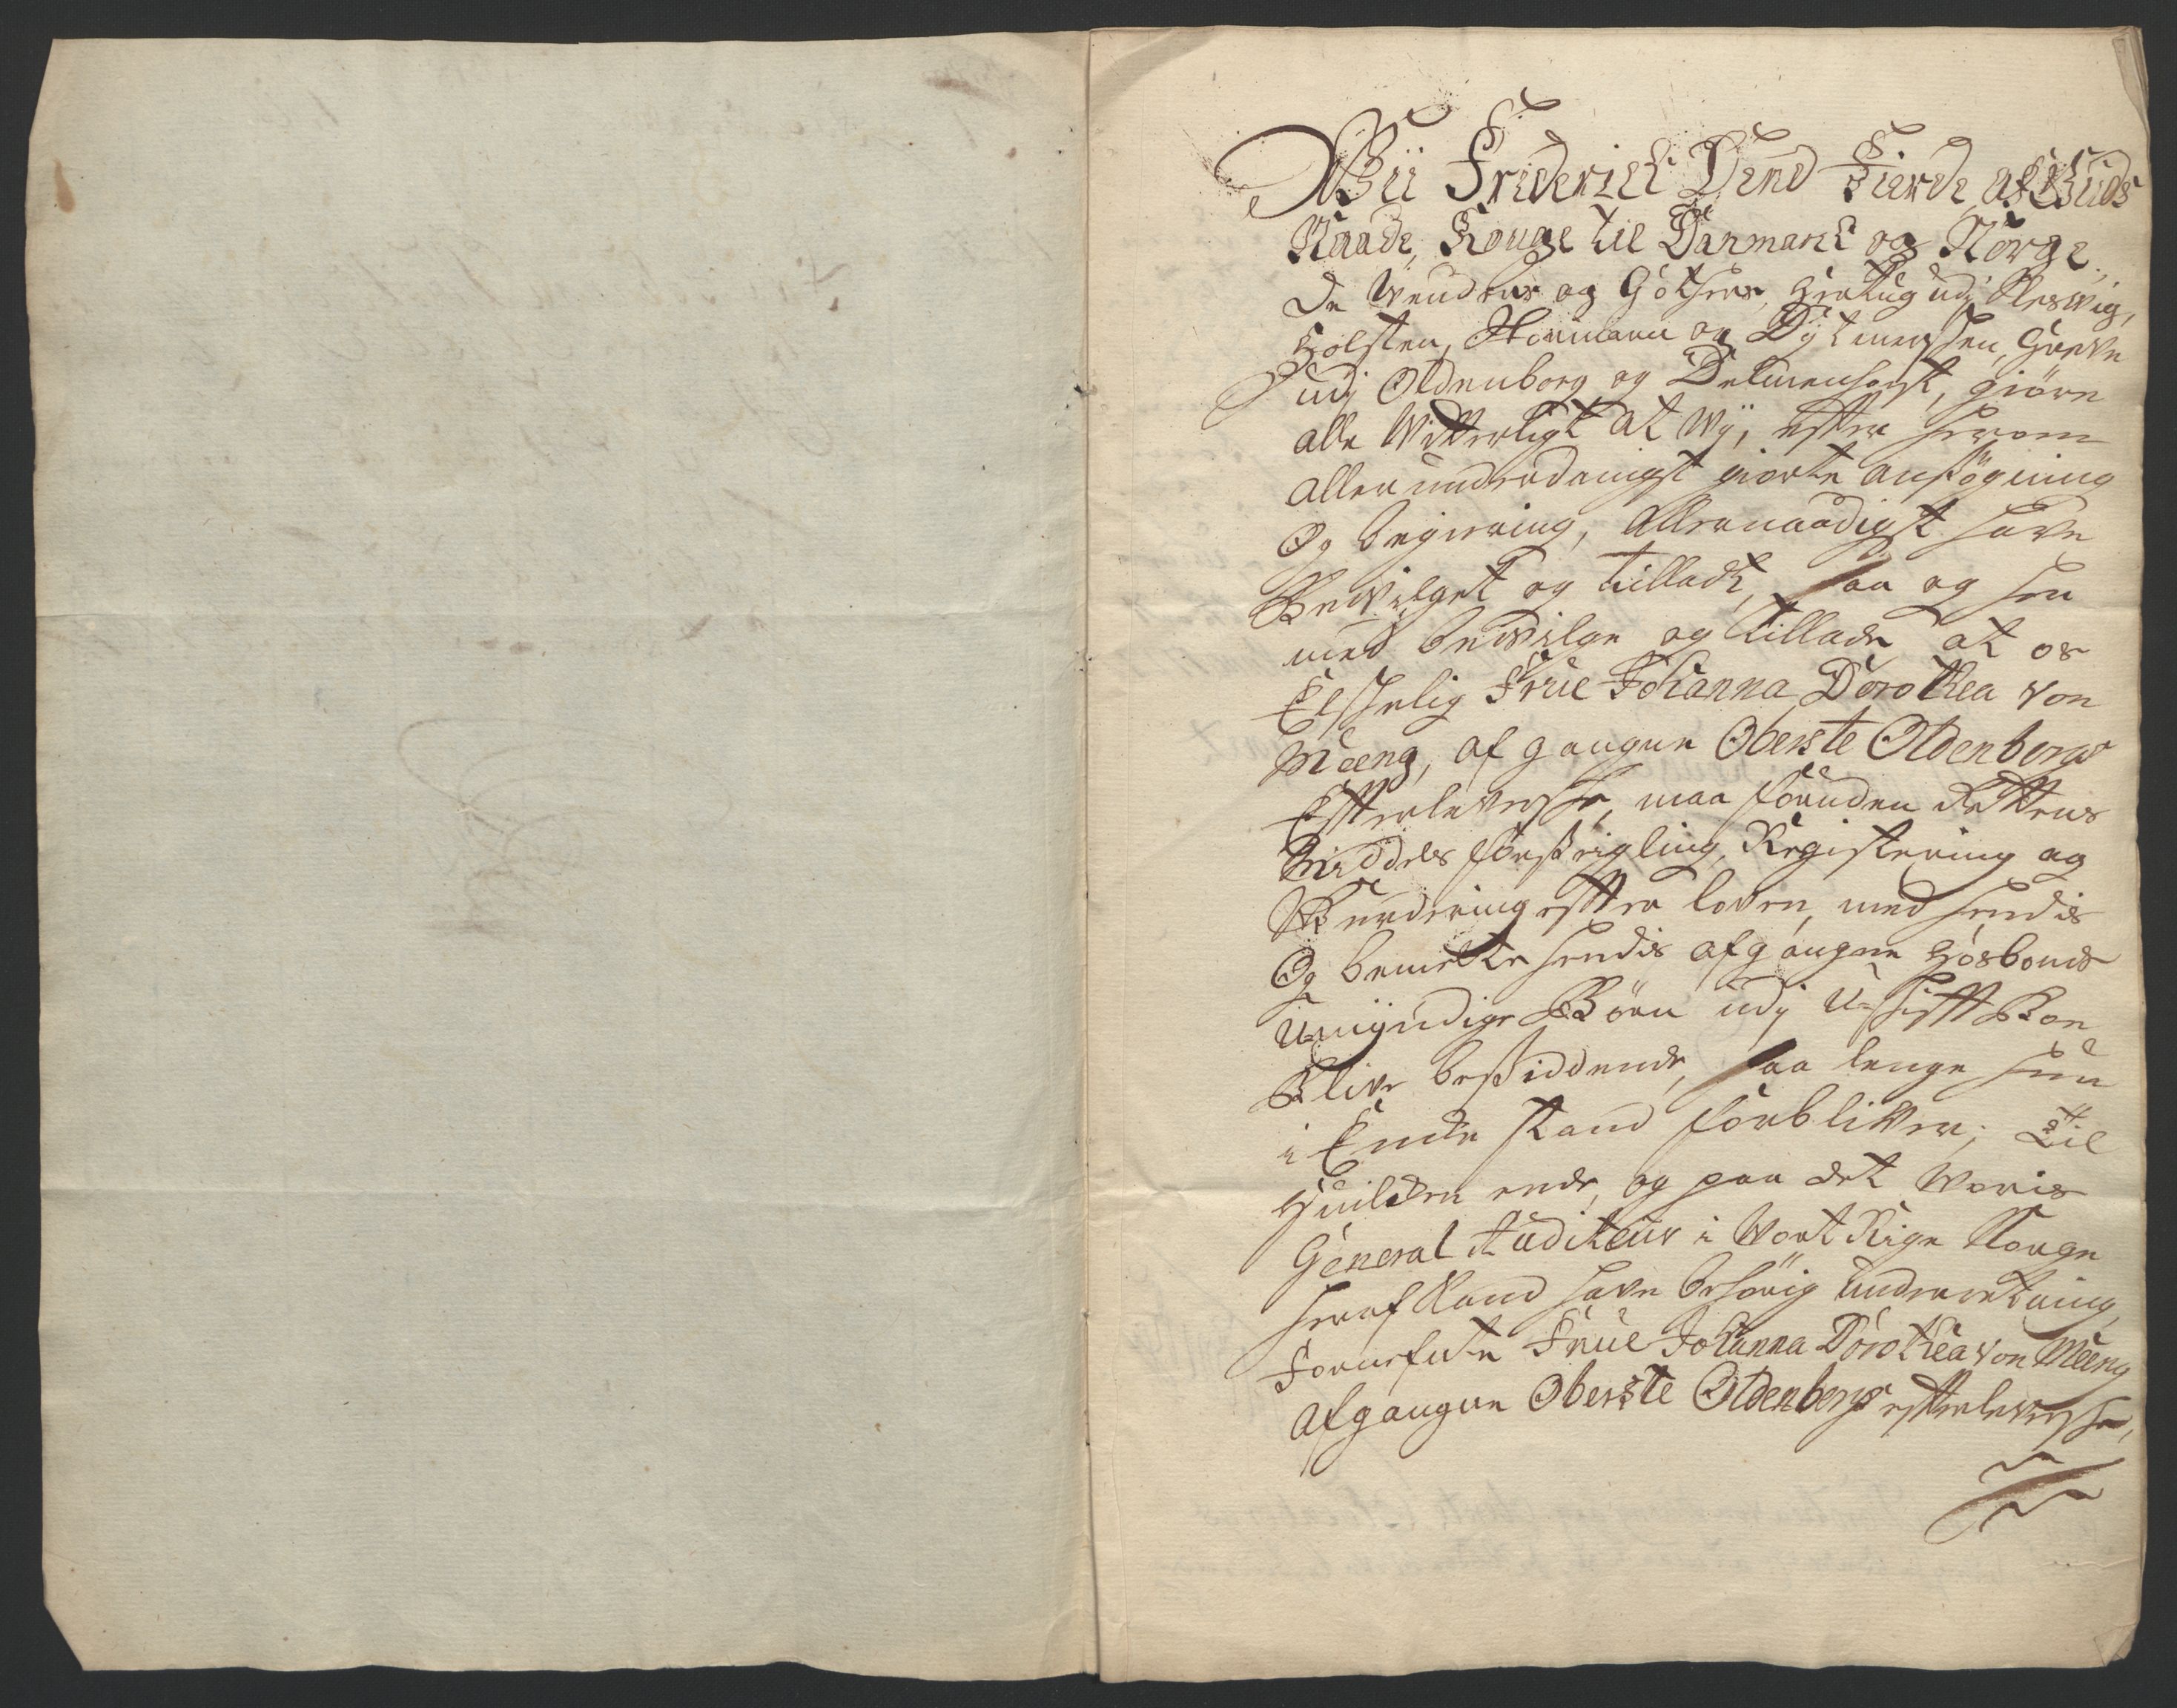 Wii Friderich Dend Fierde, af Guds
Naade, Konge til Danmark og Norge,
de Wenders og Gothers, Hertug udj Slesvig,
Holsten, Stormarn og Dytmersken, Greve
udj Oldenborg og Delmenhorst, giøre
alle Vitterligt at Wij, efter herom
allerunderdanigst giorte ansøgning
Og begiering, Allernaadigst have
Bevilget og tilladt, saa og her
med bevilge og tillade, at os
Elskelig Frue Johanna Dorothea von
Meeng, afgangne Oberste Oldenborgs
Efterleverske, maa foruden Rettens
Middels forseigling, Registering og
Vurdering efter loven, med hendis
Og bemelte hendis afgangne Hosbonds
umyndige Børn udj U-skifft Boe
Blive besiddende, saa lenge hun
i Encke stand forbliver; Til
Hvilken ende, og paa det Woris
General Auditeur i Vort Rige Norge
heraf kand have behørig underretning,
Fornefnte Frue Johanna Dorothea von Meeng
Afgangne Oberste Oldenborgs efterleverske,